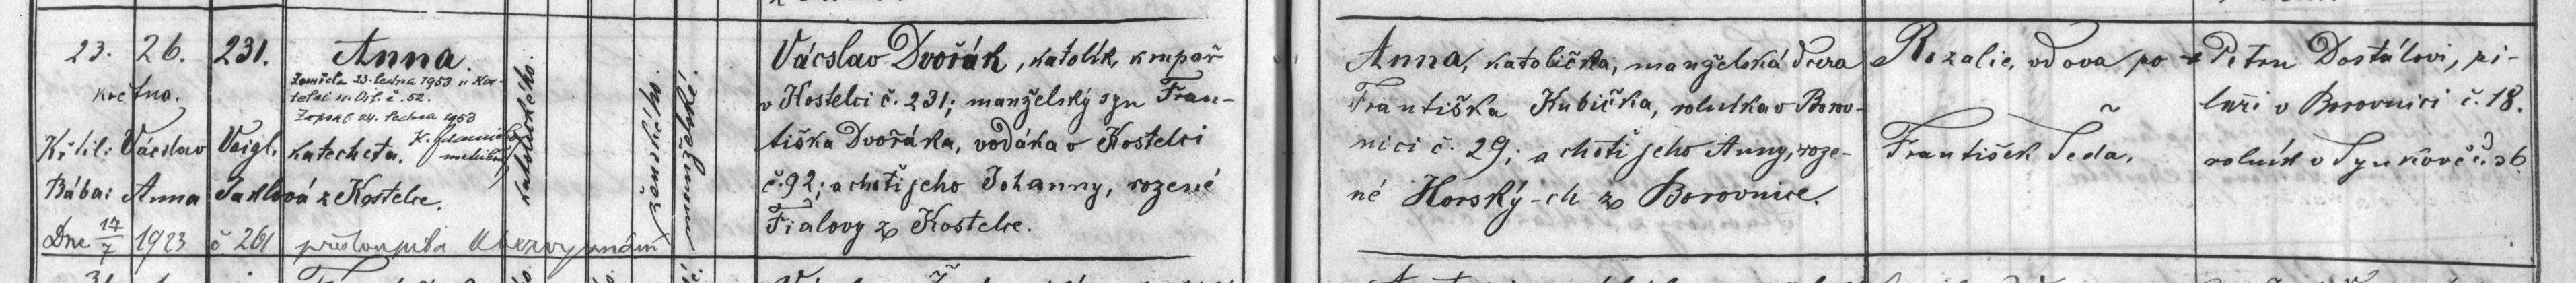 23. 26. 231. Anna.
května.
Zemřela 23. ledna 1953 v Kos-
telci n. Orl. č. 52.
Zapsal 24. ledna 1953
Křtil: Václav Voigl, katecheta.
Bába: Anna Sadlová z Kostelce.
Dne 17/7 1923 č 261 přistoupila k bezvyznání
katolického.
ženského.
manželské.
Václav Dvořák, katolík, krupař
v Kostelci č. 231; manželský syn Fran-
tiška Dvořáka, vodáka v Kostelci
č. 92; a choti jeho Johanny, rozené
Fialovy z Kostelce.
Anna, katolička, manželská dcera
Františka Kubíčka, rolníka v Boro-
nici č. 29; a choti jeho Anny, roze-
né Horský-ch z Borovnice.
Rozalie, vdova po Petru Dostálovi, pi-
laři v Borovnici č. 18.
František Šeda, rolník v Synkově č. 36.